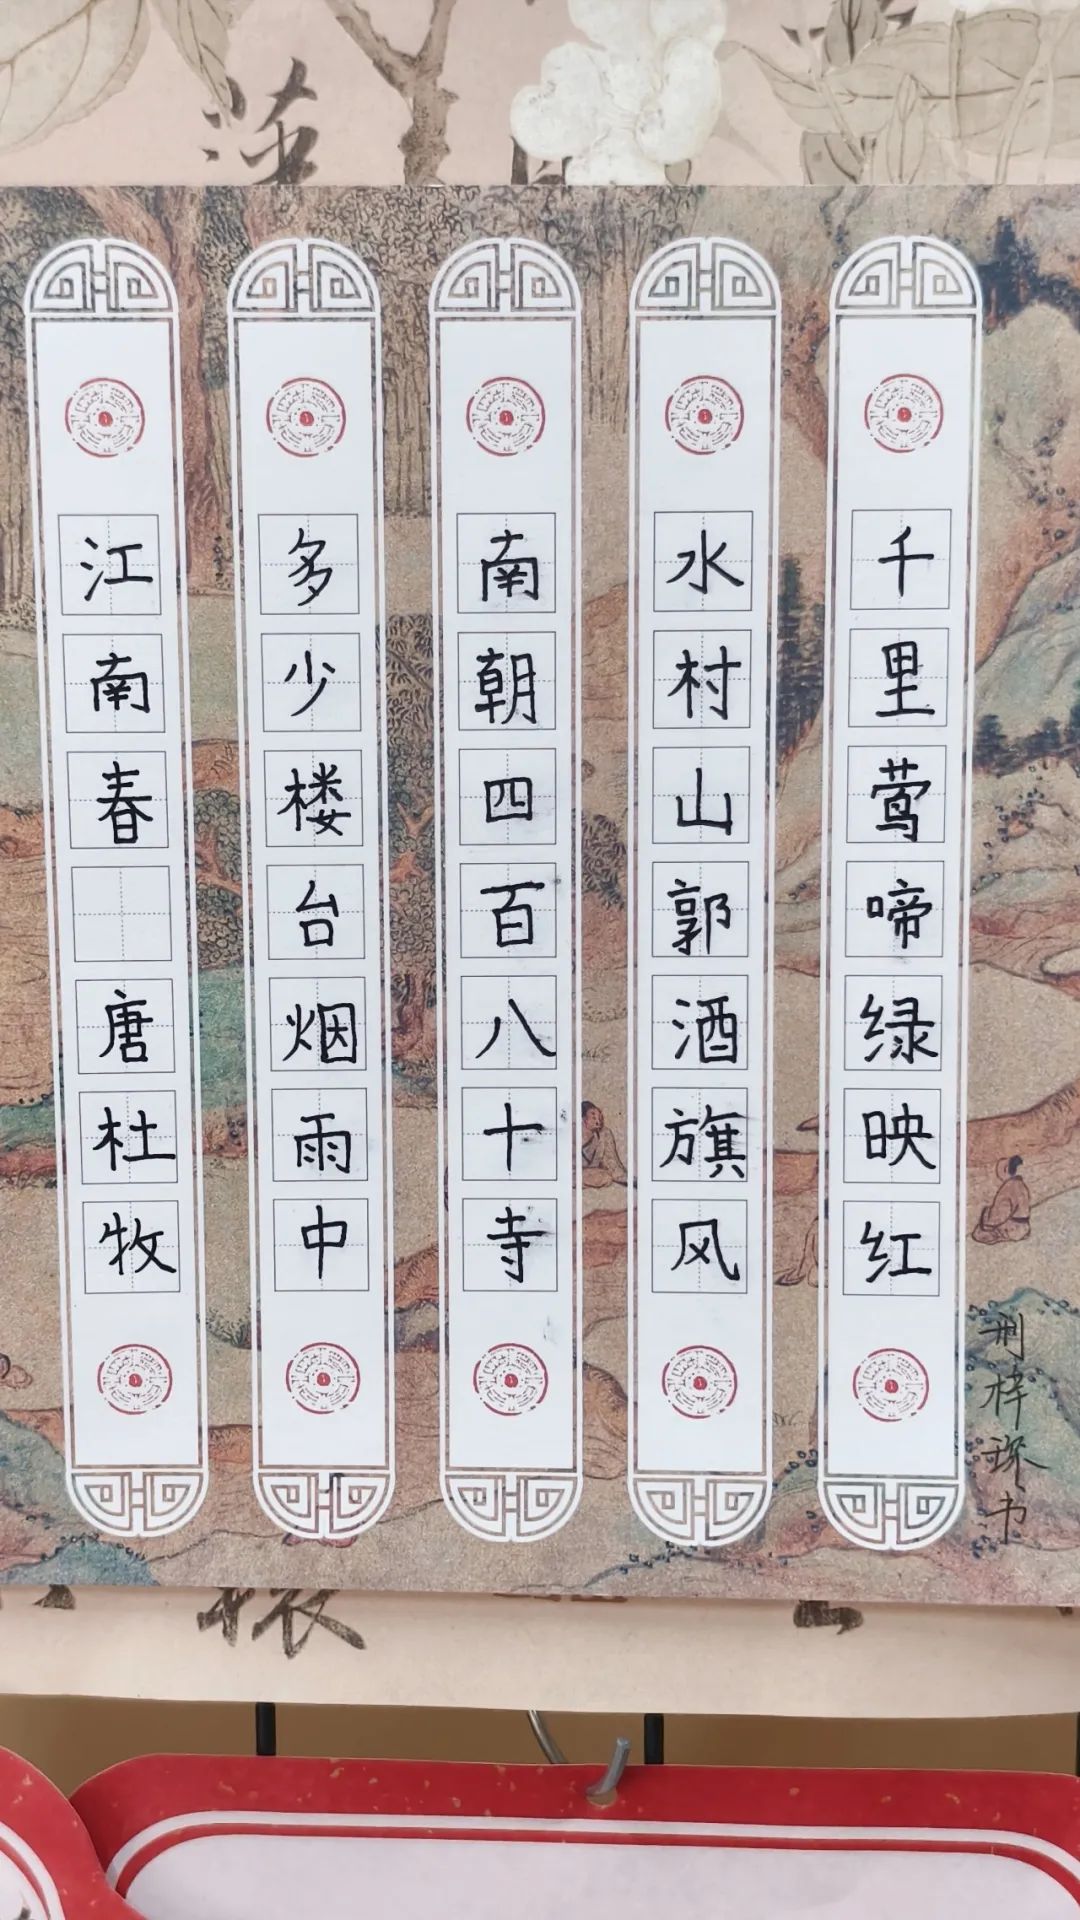 千里莺啼绿映红
水村山郭酒旗风
南朝四百八十寺
多少楼台烟雨中
江南春 唐杜牧
刑梓琛书